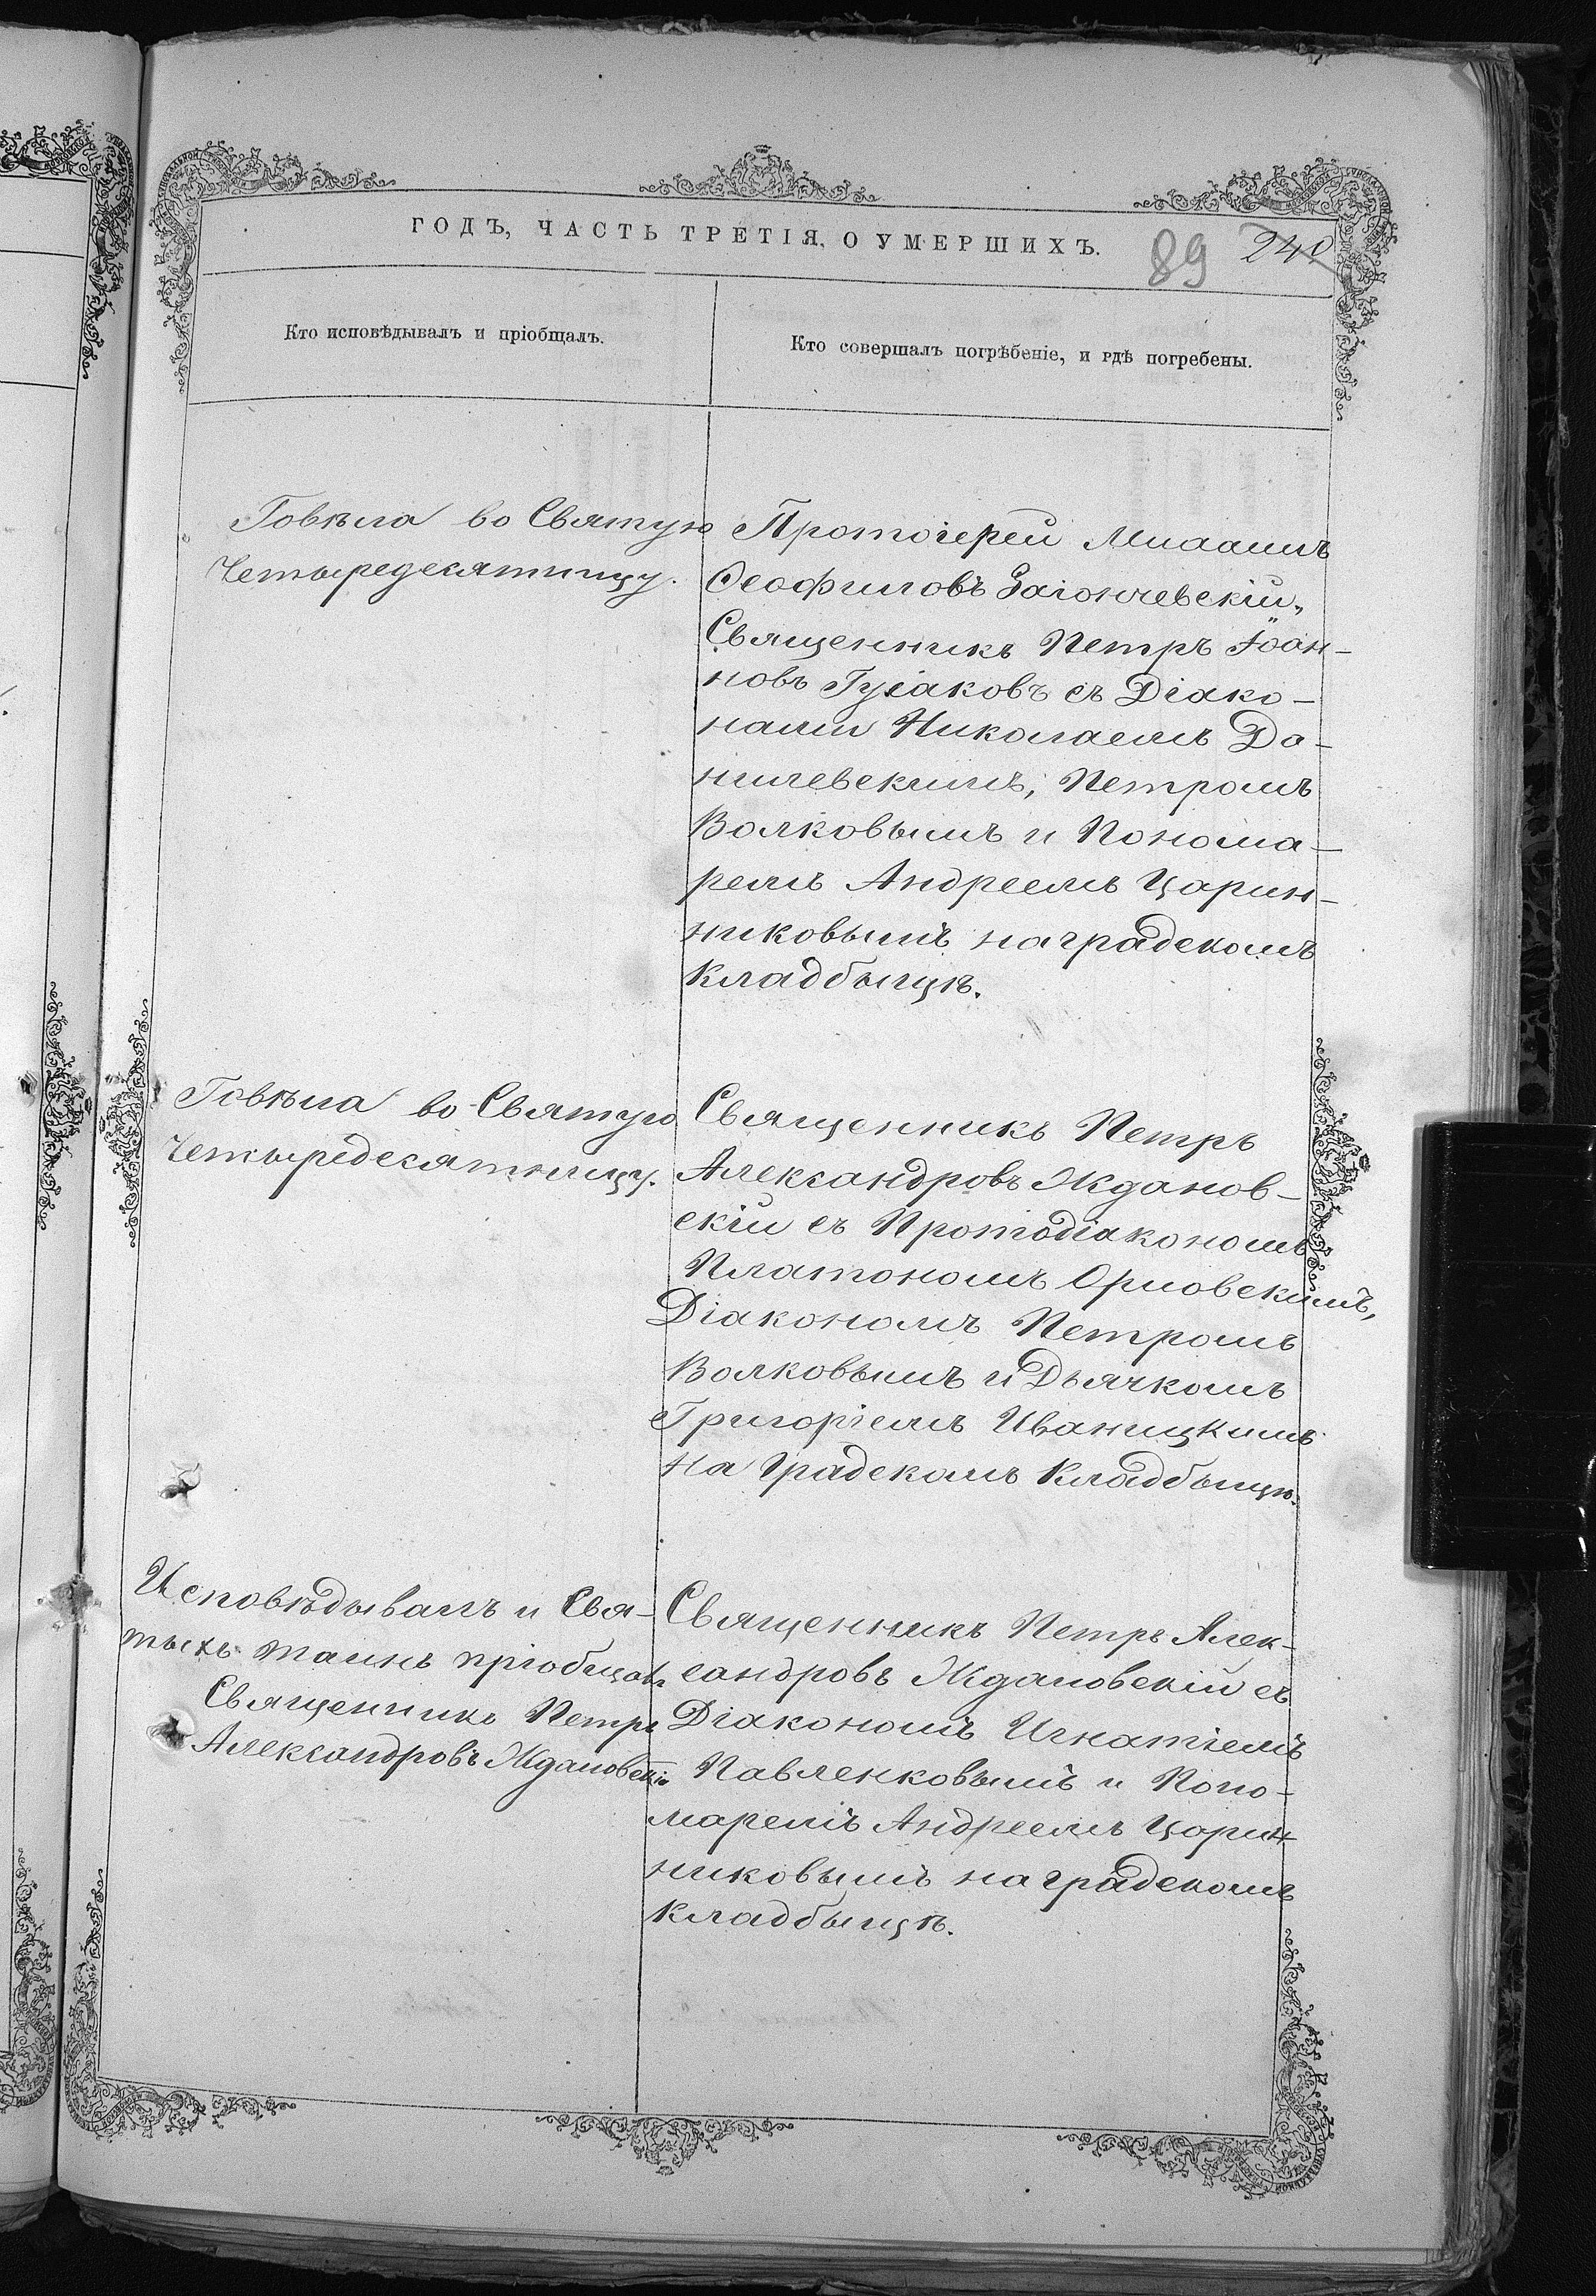 ГОДЪ, ЧАСТЬ ТРЕТІЯ, О УМЕРШИХЪ.
89 240
Кто исповѣдывалъ и пріобщалъ.
Кто совершалъ погрѣбеніе, и гдѣ погребены.
Говѣла во Святую
Четыредесятницу.
Протоіерей Михаилъ
Ѳеофиловъ Заіончевскій,
Священникъ Петръ Іоан-
новъ Гусаковъ съ Діако-
нами Николаемъ Да-
нилевскимъ, Петромъ
Волковымъ и Понома-
ремъ Андреемъ Царин-
никовымъ на градскомъ
кладбыщѣ.
Говѣла во Святую
Четыредесятницу.
Священникъ Петръ
Александровъ Жданов-
скій съ Протодіакономъ
Платономъ Орловскимъ,
Діакономъ Петромъ
Волковымъ и Дьячкомъ
Григоріемъ Иваницкимъ
на градскомъ кладбыщѣ.
Исповѣдывалъ и Свя-
тыхъ таинъ пріобщалъ
Священникъ Петръ
Александровъ Ждановскій
Священникъ Петръ Алек-
сандровъ Ждановскій съ
Діакономъ Игнатіемъ
Павленковымъ и Поно-
маремъ Андреемъ Царин-
никовымъ на градскомъ
кладбыщѣ.